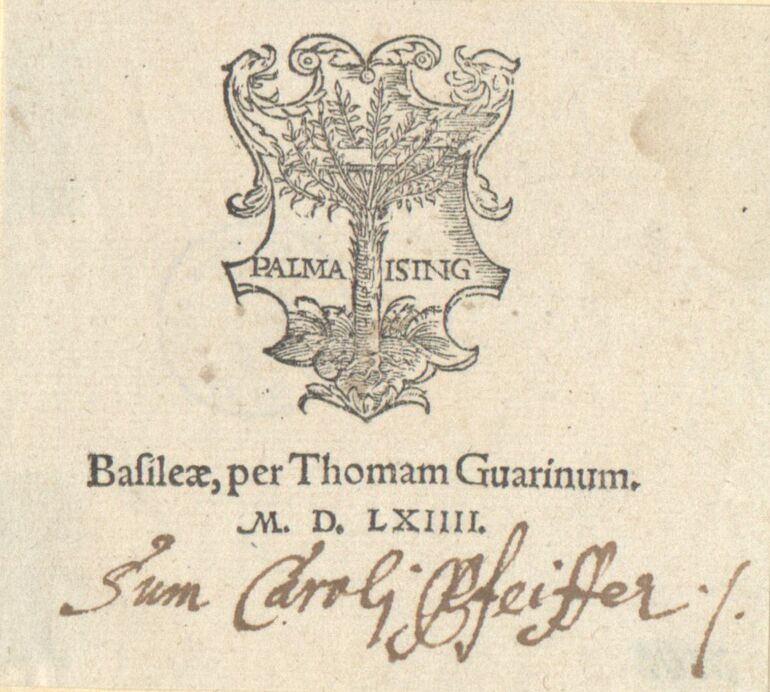 PALMA ISING
Baſileæ, per Thomam Guarinum.
M. D. LXIIII.
Sum Caroli Pfeiffer ./.